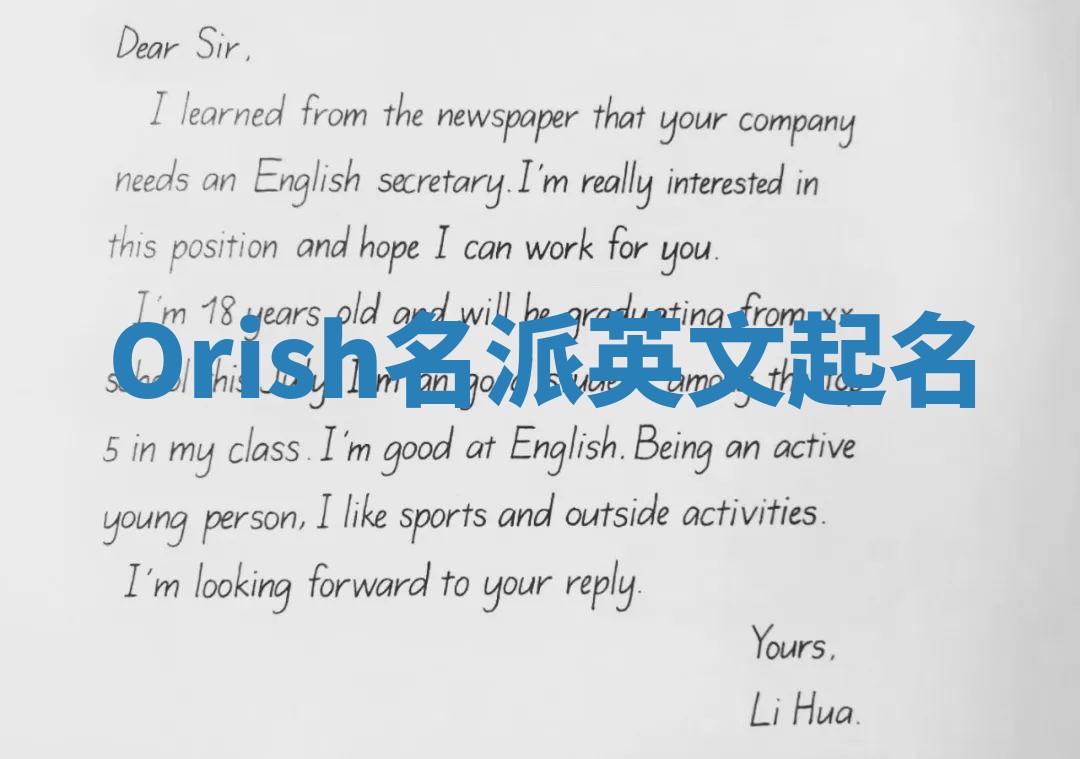 Dear Sir,
I learned from the newspaper that your company
needs an English secretary. I'm really interested in
this position and hope I can work for you.
I'm 18 years old and will be graduating from xx
Orish名派英文起名
school this July. I'm an good student among the top
5 in my class. I'm good at English. Being an active
young person, I like sports and outside activities.
I'm looking forward to your reply.
Yours,
Li Hua.